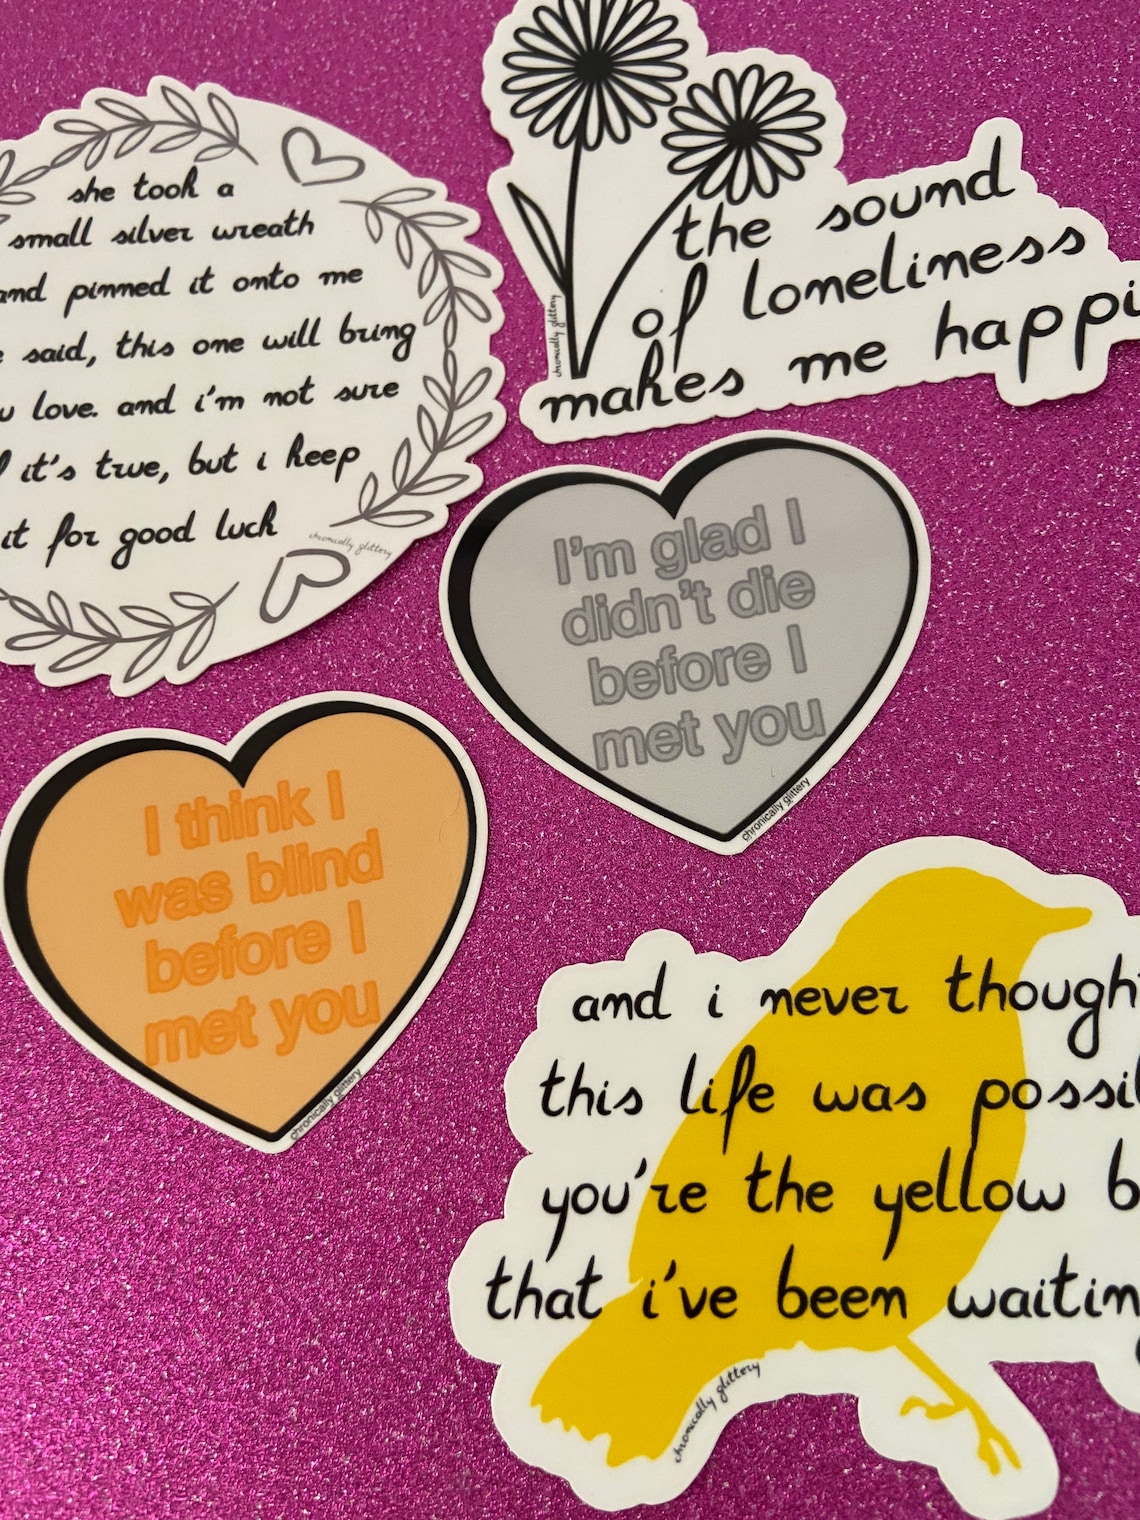 she took a
small silver wreath
and pinned it onto me
said, this one will bring
love. and i'm not sure
it's true, but i keep
it for good luck
chronically glittery
the sound
of loneliness
makes me happi
chronically glittery
I'm glad I
didn't die
before I
met you
chronically glittery
I think I
was blind
before I
met you
chronically glittery
and i never though
this life was possi
you're the yellow b
that i've been waitin
chronically glittery